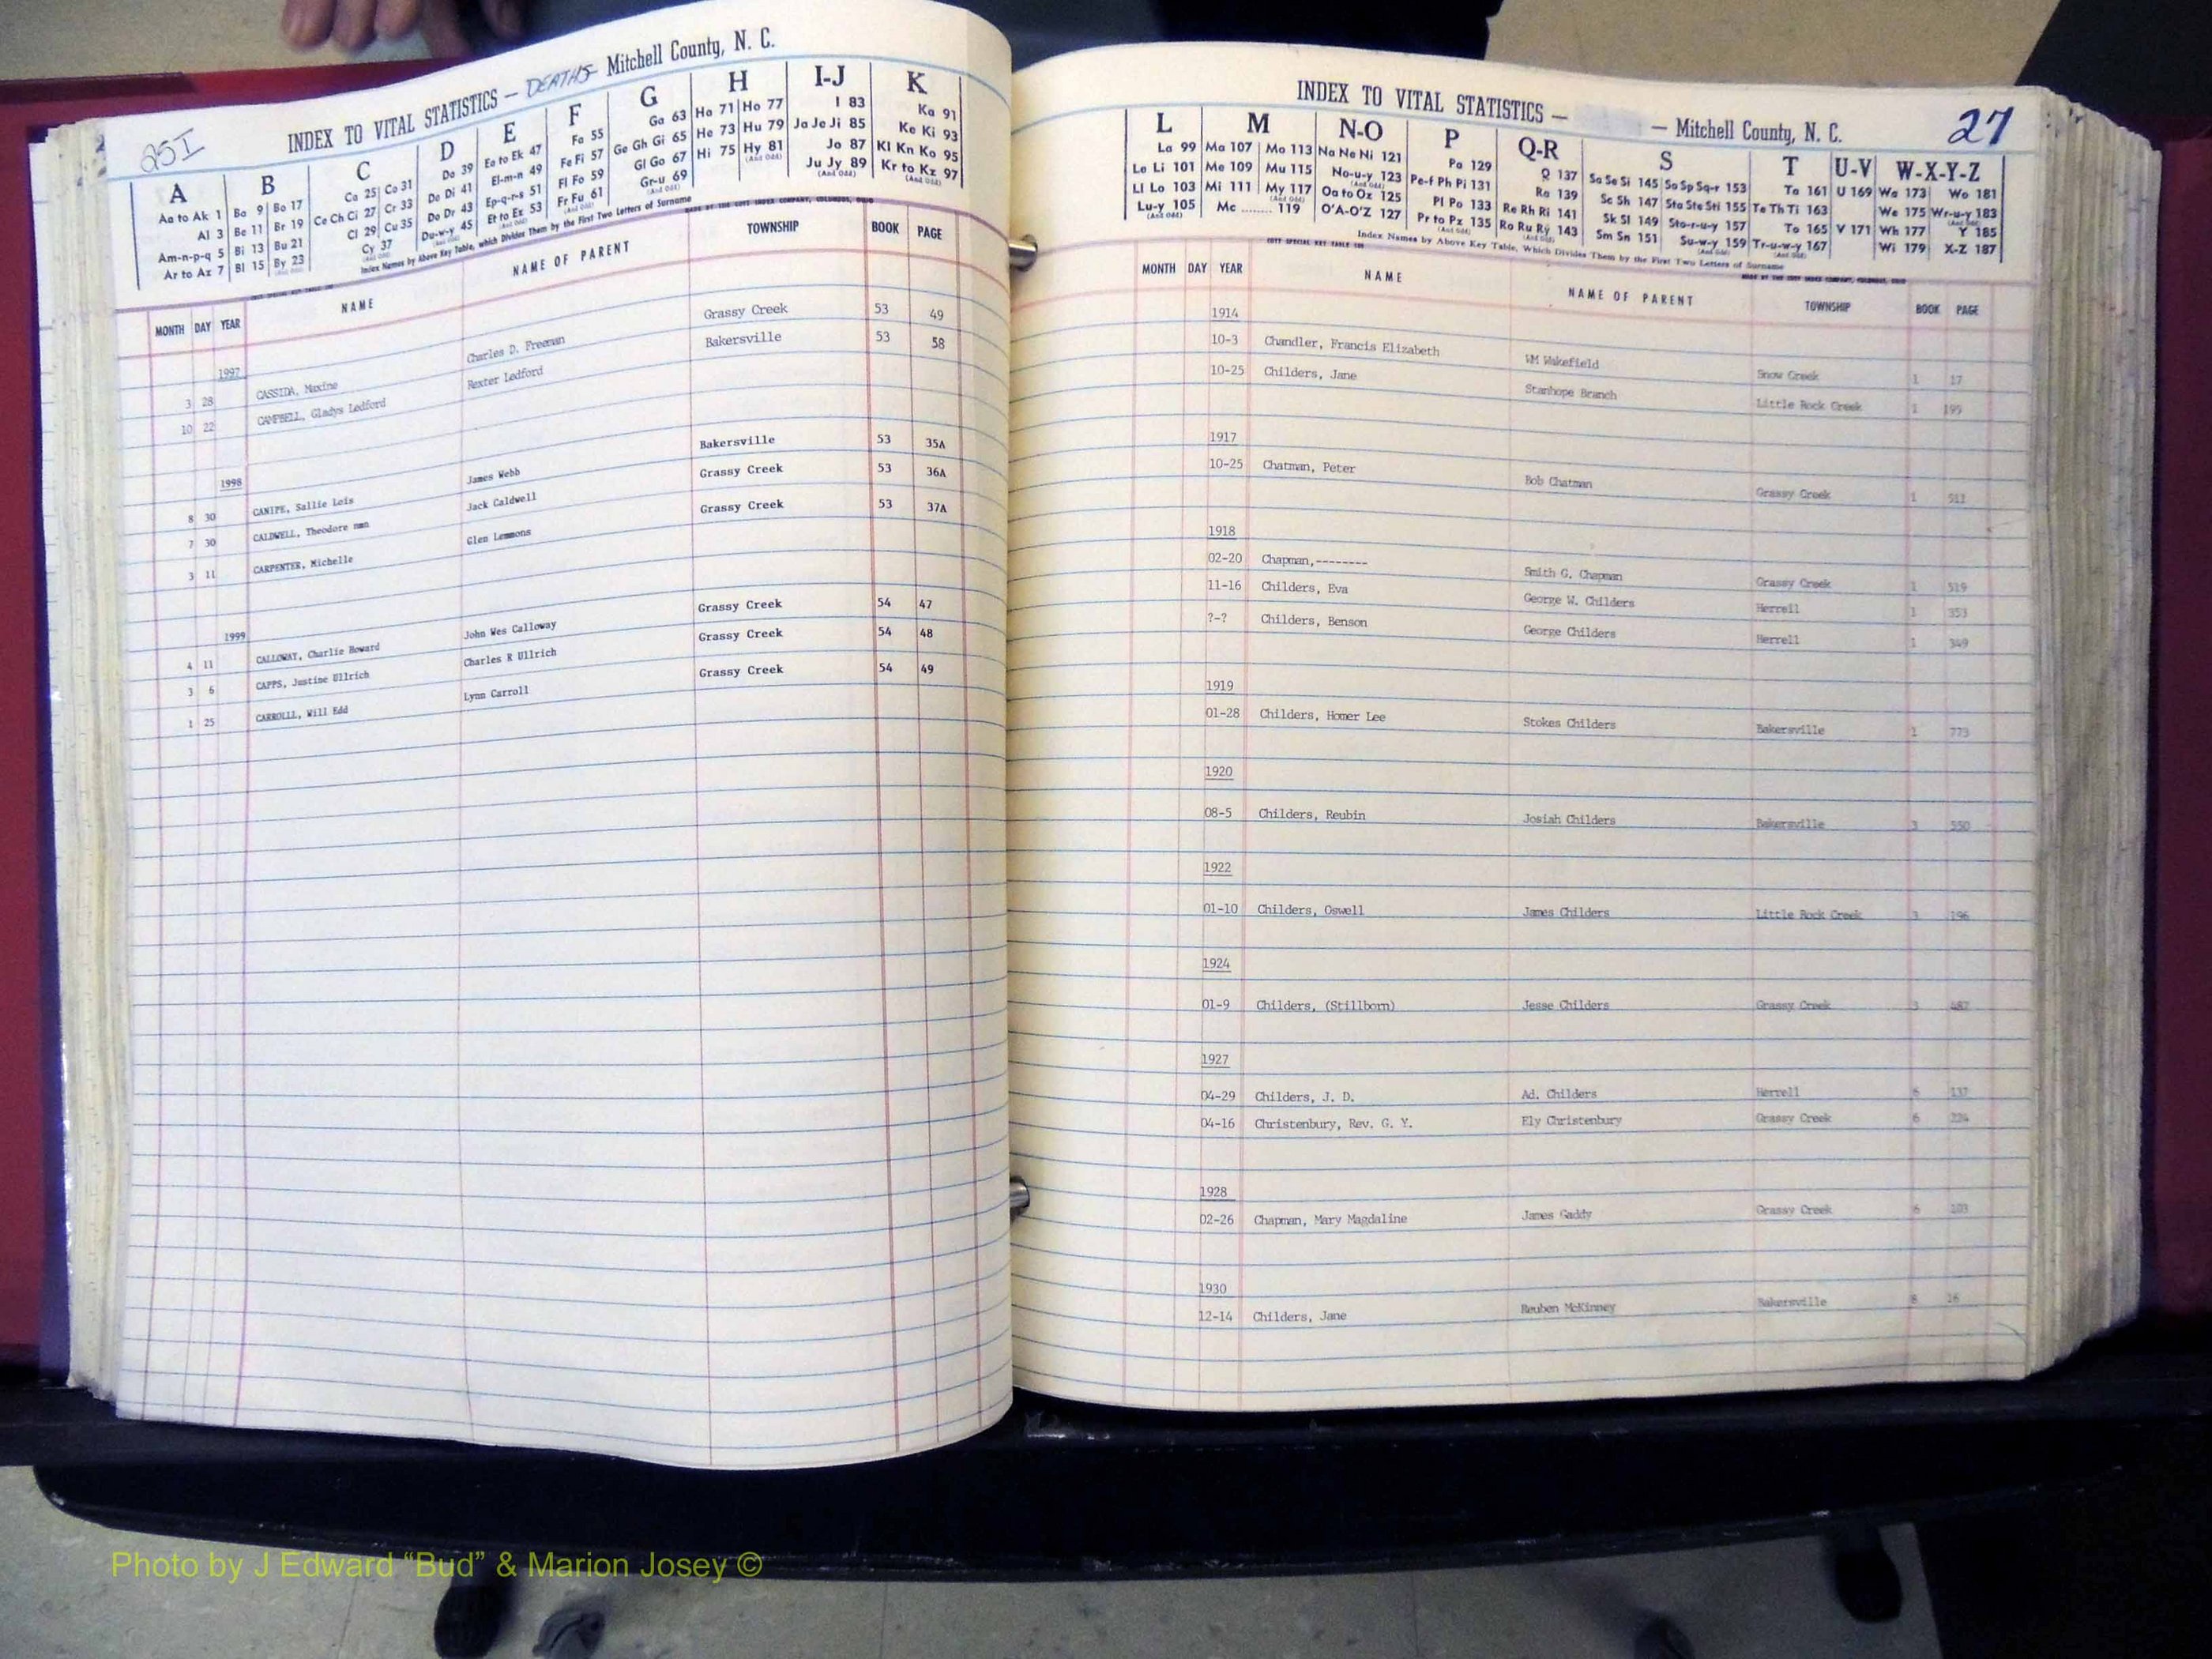 25I
INDEX TO VITAL STATISTICS — DEATHS — Mitchell County, N. C.
A B C D E F G H I-J K
Aa to Ak 1 Ba 9 Bo 17 Ca 25 Co 31 Da 39 Ea to Ek 47 Fa 55 Ga 63 Ha 71 Ho 77 I 83 Ka 91
Al 3 Be 11 Br 19 Ce Ch Ci 27 Cr 33 De Di 41 El-m-n 49 Fe Fi 57 Ge Gh Gi 65 He 73 Hu 79 Ja Je Ji 85 Ke Ki 93
Am-n-p-q 5 Bi 13 Bu 21 Cl 29 Cu 35 Do Dr 43 Ep-q-r-s 51 Fl Fo 59 Gl Go 67 Hi 75 Hy 81 (And Odd) Jo 87 Kl Kn Ko 95
Ar to Az 7 Bl 15 By 23 (And Odd) Cy 37 (And Odd) Du-w-y 45 (And Odd) Et to Ez 53 (And Odd) Fr Fu 61 (And Odd) Gr-u 69 (And Odd) Ju Jy 89 (And Odd) Kr to Kz 97 (And Odd)
Index Names by Above Key Table, which Divides Them by the First Two Letters of Surname
MADE BY THE COTT INDEX COMPANY, COLUMBUS, OHIO
MONTH DAY YEAR NAME NAME OF PARENT TOWNSHIP BOOK PAGE
1997
3 28 CASSIDA, Maxine Charles D. Freeman Grassy Creek 53 49
10 22 CAMPBELL, Gladys Ledford Rexter Ledford Bakersville 53 58
1998
8 30 CANIPE, Sallie Lois James Webb Bakersville 53 35A
7 30 CALDWELL, Theodore nmn Jack Caldwell Grassy Creek 53 36A
3 11 CARPENTER, Michelle Glen Lemmons Grassy Creek 53 37A
1999
4 11 CALLOWAY, Charlie Howard John Wes Calloway Grassy Creek 54 47
3 6 CAPPS, Justine Ullrich Charles R Ullrich Grassy Creek 54 48
1 25 CARROLLL, Will Edd Lynn Carroll Grassy Creek 54 49
INDEX TO VITAL STATISTICS — — Mitchell County, N. C. 27
L M N-O P Q-R S T U-V W-X-Y-Z
La 99 Ma 107 Mo 113 Na Ne Ni 121 Pa 129 Q 137 Sa Se Si 145 So Sp Sq-r 153 Ta 161 U 169 Wa 173 Wo 181
Le Li 101 Me 109 Mu 115 No-u-y 123 (And Odd) Pe-f Ph Pi 131 Ra 139 Sc Sh 147 Sta Ste Sti 155 Te Th Ti 163 We 175 Wr-u-y 183 (And Odd)
Ll Lo 103 Mi 111 My 117 (And Odd) Oa to Oz 125 Pl Po 133 Re Rh Ri 141 Sk Sl 149 Sto-r-u-y 157 To 165 V 171 Wh 177 Y 185
Lu-y 105 (And Odd) Mc ........ 119 O'A-O'Z 127 Pr to Pz 135 (And Odd) Ro Ru Ry 143 (And Odd) Sm Sn 151 Su-w-y 159 (And Odd) Tr-u-w-y 167 (And Odd) Wi 179 X-Z 187
Index Names by Above Key Table, Which Divides Them by the First Two Letters of Surname
MONTH DAY YEAR NAME NAME OF PARENT TOWNSHIP BOOK PAGE
1914
10-3 Chandler, Francis Elizabeth WM Wakefield Snow Creek 1 17
10-25 Childers, Jane Stanhope Branch Little Rock Creek 1 199
1917
10-25 Chatman, Peter Bob Chatman Grassy Creek 1 511
1918
02-20 Chapman,-------- Smith G. Chapman Grassy Creek 1 519
11-16 Childers, Eva George W. Childers Herrell 1 353
?-? Childers, Benson George Childers Herrell 1 349
1919
01-28 Childers, Homer Lee Stokes Childers Bakersville 1 773
1920
08-5 Childers, Reubin Josiah Childers Bakersville 3 550
1922
01-10 Childers, Oswell James Childers Little Rock Creek 3 196
1924
01-9 Childers, (Stillborn) Jesse Childers Grassy Creek 3 487
1927
04-29 Childers, J. D. Ad. Childers Herrell 6 137
04-16 Christenbury, Rev. G. Y. Ely Christenbury Grassy Creek 6 224
1928
02-26 Chapman, Mary Magdaline James Gaddy Grassy Creek 6 103
1930
12-14 Childers, Jane Reuben McKinney Bakersville 8 16
Photo by J Edward “Bud” & Marion Josey ©